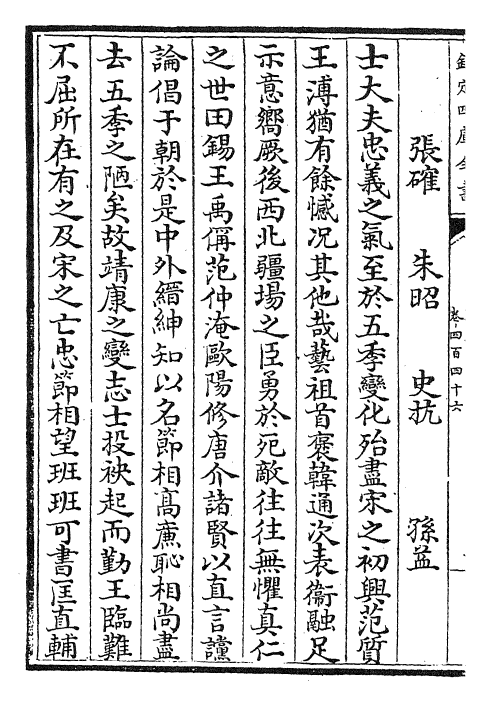 欽定四庫全書
卷四百四十六
張確 朱昭 史抗 孫益
士大夫忠義之氣至於五季變化殆盡宋之初興范質
王溥猶有餘憾况其他哉藝祖首褒韓通次表衞融足
示意嚮厥後西北疆場之臣勇於死敵往往無懼真仁
之世田錫王禹偁范仲淹歐陽修唐介諸賢以直言讜
論倡于朝於是中外縉紳知以名節相髙廉恥相尚盡
去五季之陋矣故靖康之變志士投袂起而勤王臨難
不屈所在有之及宋之亡忠節相望班班可書匡直輔